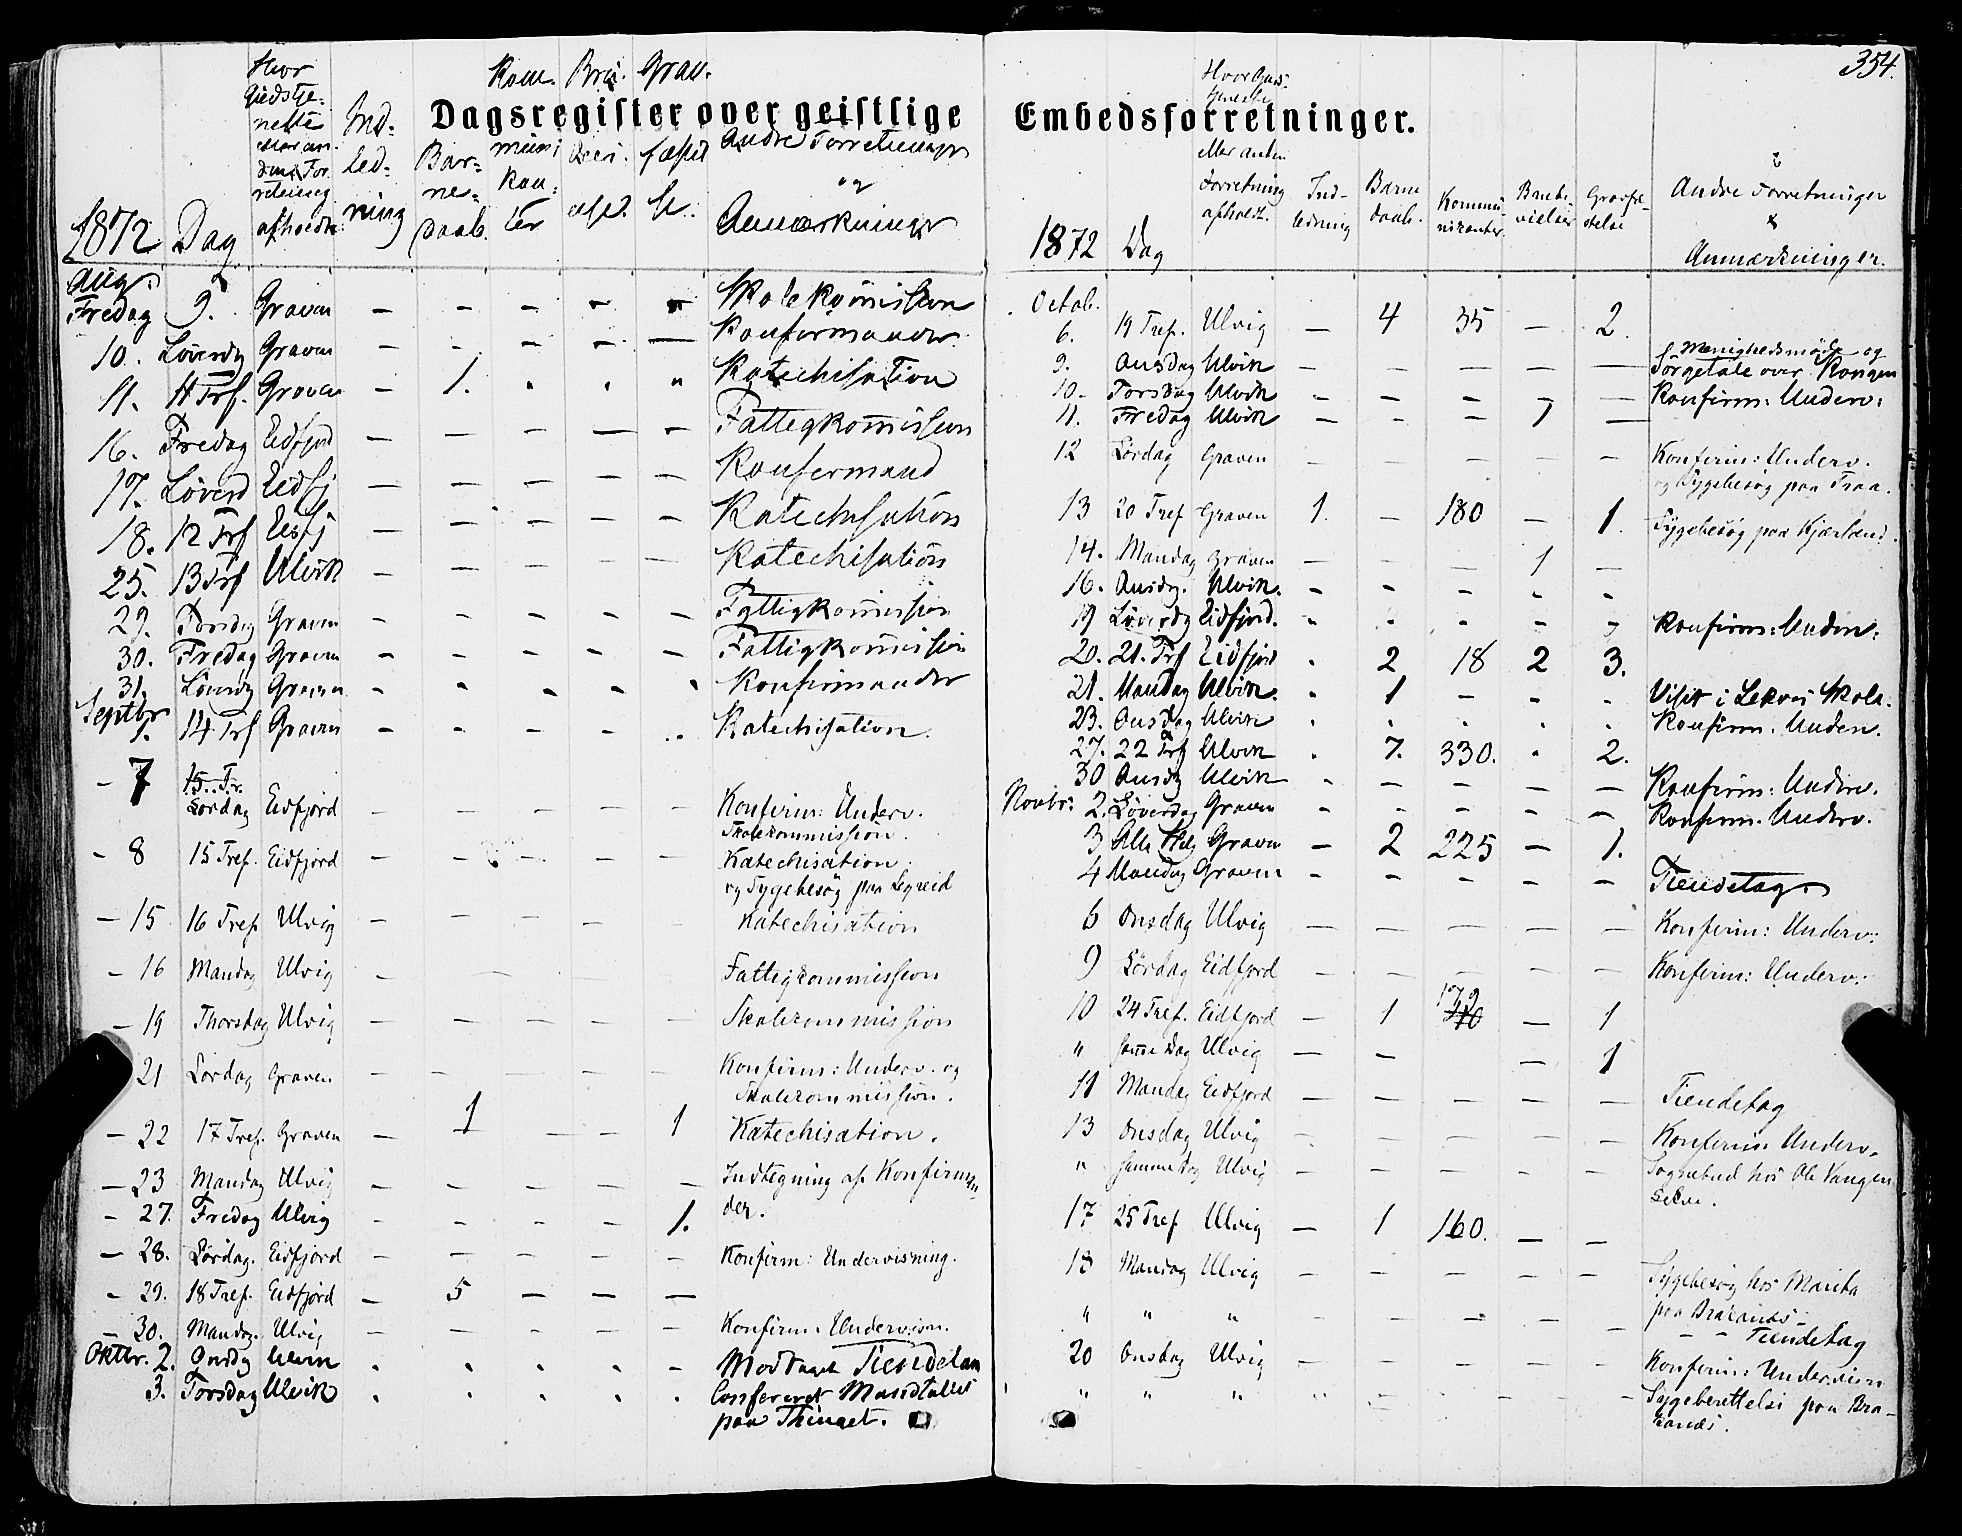 354.
Dagsregister over geistlige Embedsforretninger.
1872 Dag Hvor Gudstjeneste eller anden Forretning afholdes Indledning Barnedaab. Kommunikanter Andre Forretninger og Anmærkninger
Aug.
Fredag 9. Graven – – – – " Skolekommission
10. Løverdg Graven – – – – – Konfirmander
11. 11 Trf. Graven – 1. " " " Katechisation
16. Fredag Eidfjord – – – – – Fattigkommission
17. Løverd Eidfj – – – – – Konfermand
18. 12 Trf Eidfj – – – – – Katechisation
25. 13 Trf Ulvik – – – – – Katechisation
29. Torsdag Graven – – – – – Fattigkommission
30. Fredag Graven – – – – – Fattigkommission
31. Løverdg Graven – – – – – Konfirmander
Septbr
1. 14 Trf Graven – – – – – Katechisation.
– 7 Lørdag Eidfjord – – – – – Konfirm: Underv.
Skolekommission.
– 8 15 Tref. Eidfjord – – – – – Katechisation
og Sygebesøg paa Legreid
– 15 16 Tref Ulvig – – – – – Katechisation
– 16 Mandag Ulvig – – – Fattigkommission
– 19 Thorsdag Ulvig – – – – – Skolekommission
21 Lørdag Graven – – – – – Konfirm: Underv. og
Skolekommission.
– 22 17 Tref. Graven – 1 – – 1 Katechisation.
– 23 Mandag Ulvig – – – – – Indtegning af Konfirman
der.
– 27. Fredag Ulvig – – – – 1.
– 28. Lørdag. Eidfjord – – – – – Konfirm: Undervisning.
– 29. 18 Tref. Eidfjord – 5 – – –
– 30. Mandag. Ulvig – – – – – Konfirm: Undervisn.
Oktbr. 2. Onsdg Ulvik . . . . – Modtaget Tienden
3. Torsdag Ulvik . . . . . Confereret Mandtallet
paa Thinget.
1872 Dag Hvor Gudstjeneste eller anden Forretning afholdt. Indledning Barnedaab. Kommunikanter. Brudevielser Gravfæstelse Andre Forretninger & Anmærkninger.
Octob.
6. 19 Tref. Ulvig – 4 35 – 2.
9. Onsdag Ulvik – – – – – Menighedsmøde og
Sørgetale over Kongen
10. Torsdag Ulvik – – – – – Konfirm: Underv:
11. Fredag Ulvik – – – 1 –
12 Lørdag Graven – – – – – Konfirm: Underv.
og Sygebesøg paa Traa.
13 20 Tref Graven 1. – 180 – 1. Sygebesøg paa Kjærland.
14. Mandag Graven – – – 1 –
16. Onsdg. Ulvik. – – – – –
19 Løverdg Eidfjord. – – – – – Konfirm: Underv.
20. 21. Trf Eidfjord . 2 18 2 3.
21. Mandag Ulvik. . 1 – – . Visit i Lekves Skole.
23. Onsdag Ulvik . . . . . Konfirm. Underv.
27. 22 Trf Ulvik . 7. 330. . 2.
30 Onsdg Ulvik – – – – – Konfirm: Underv.
Novbr: 2. Løverdag Graven – – – – – Konfirm. Underv.
3 Alle Helg Graven – 2 225 – 1.
4 Mandag Graven – – – – – Tiendetag
6 Onsdag Ulvig – – – – – Konfirm: Underv:
9 Lørdag Eidfjord – – – – – Konfirm: Underv:
10 24 Tref. Eidfjord – 1 172 – 1
" samme Dag Ulvig – – – 1
11 Mandag Eidfjord – – – – – Tiendetag
13 Onsdag Ulvig – – – – – Konfirm Underv.
" samme Dag Ulvig – – – – – Sognebud hos Ole Vangen
17 25 Tref Ulvig – 1 160. – –
18 Mandag Ulvig – – – – – Sygebesøg hos Marita
paa Brakanes
" " " – – – – – – – Tiendetag
20 Onsdag Ulvig – – – – – Konfirm: Undervisn
" " " " – – – – Sygeberettelse paa Bra–
kanes.